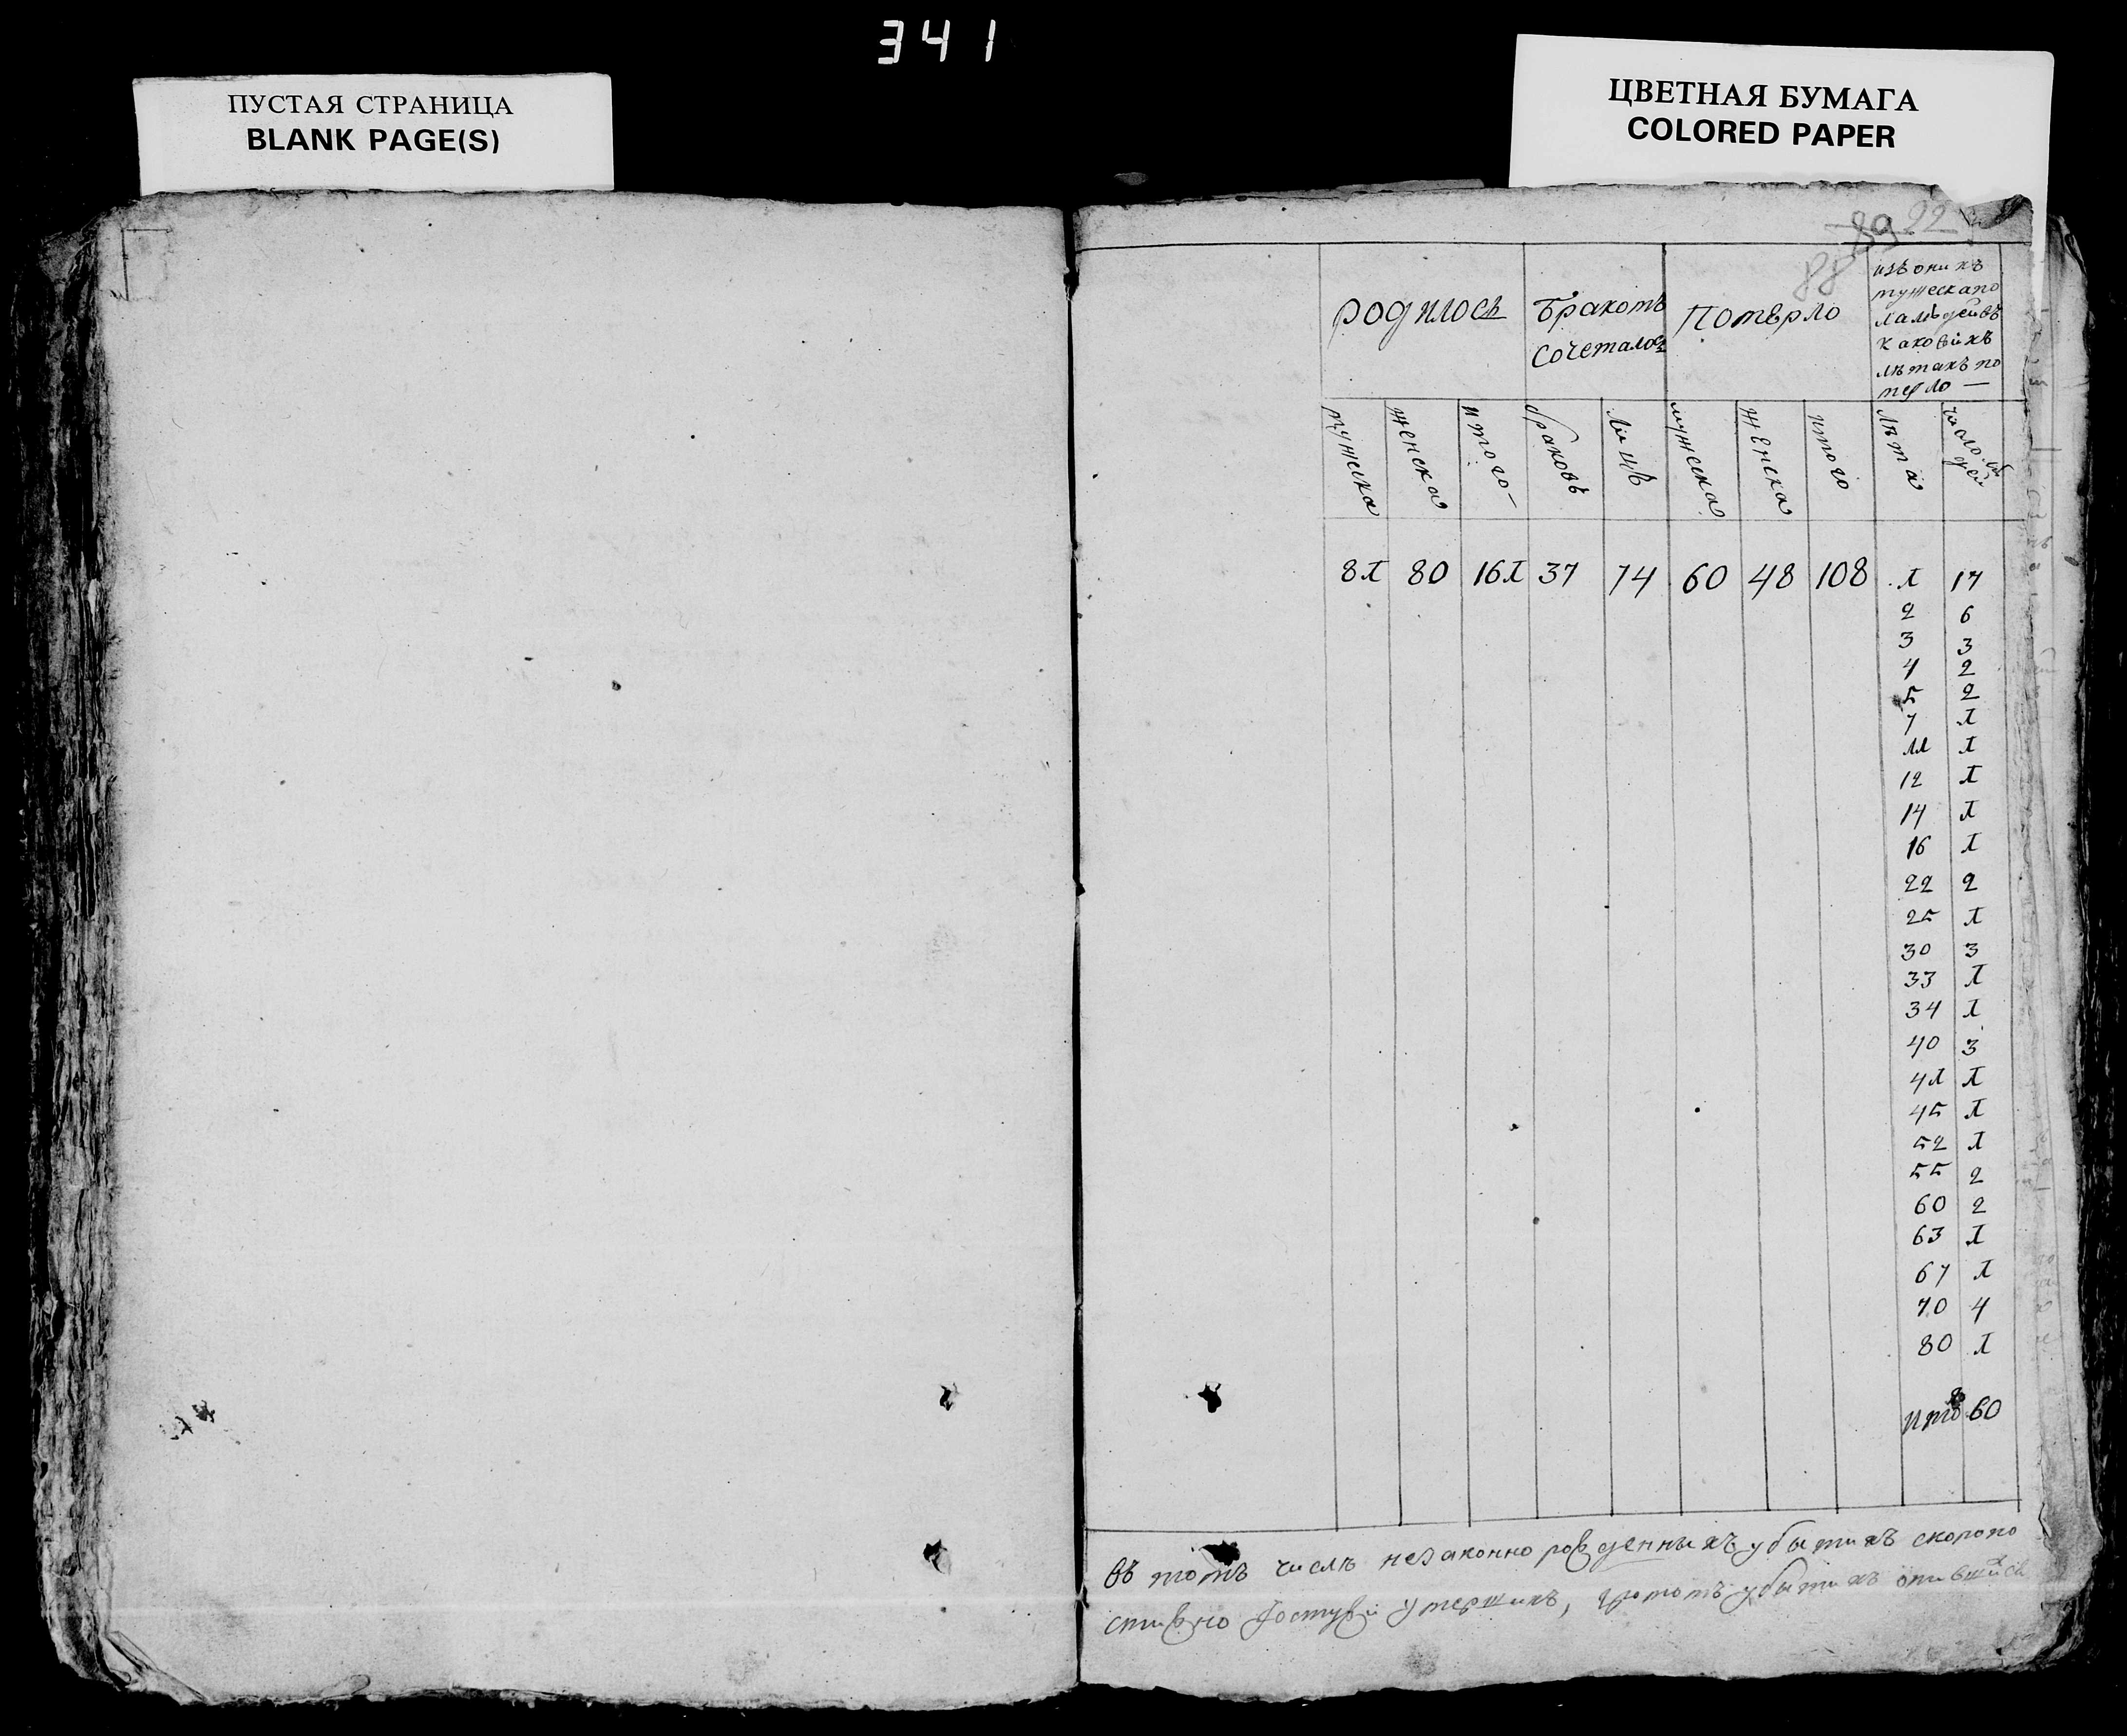 341
ПУСТАЯ СТРАНИЦА
BLANK PAGE(S)
ЦВЕТНАЯ БУМАГА
COLORED PAPER
89 22
88
родилосъ
Бракомъ
Сочеталос
Померло
изъ онихъ
мужеска по
ла людей въ
каковихъ
лѣтахъ по
мерло —
мужеска женска итого браковъ лицъ мужеска женска итого лѣта число людей
81 80 161 37 74 60 48 108 1 17
2 6
3 3
4 2
5 2
7 1
11 1
12 1
14 1
16 1
22 2
25 1
30 3
33 1
34 1
40 3
41 1
45 1
52 1
55 2
60 2
63 1
67 1
70 4
80 1
итого 60
въ томъ числѣ незаконно рожденныхъ убытихъ скоропо
стижно умершихъ, громомъ убытихъ